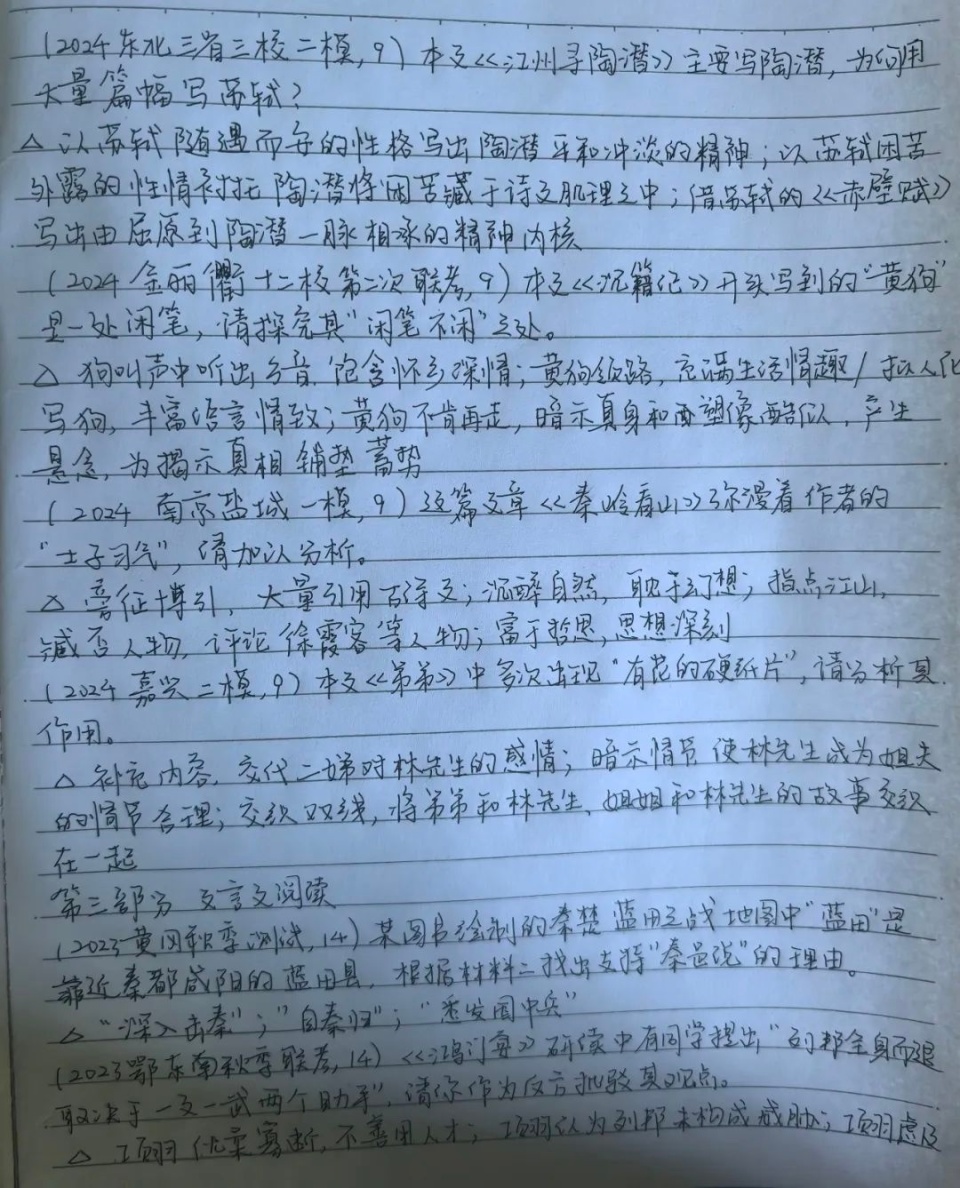 (2024 东北三省三校二模,9) 本文《江州寻陶潜》主要写陶潜,为何用
大量篇幅写苏轼?
△ 以苏轼随遇而安的性格写出陶潜平和冲淡的精神;以苏轼困苦
外露的性情衬托陶潜将困苦藏于诗文肌理之中;借苏轼的《赤壁赋》
写出由屈原到陶潜一脉相承的精神内核
(2024 金丽衢十二校第二次联考,9) 本文《沉籍记》开头写到的“黄狗”
是一处闲笔,请探究其“闲笔不闲”之处。
△ 狗叫声中听出乡音,饱含怀乡深情;黄狗领路,充满生活情趣/拟人化
写狗,丰富语言情致;黄狗不肯再走,暗示真身和西塑像酷似,产生
悬念,为揭示真相铺垫蓄势
(2024 南京盐城一模,9) 这篇文章《秦岭看山》弥漫着作者的
“士子习气”,请加以分析。
△ 旁征博引,大量引用古诗文;沉醉自然,耽于幻想;指点江山,
臧否人物,评论徐霞客等人物;富于哲思,思想深刻
(2024 嘉兴二模,9) 本文《弟弟》中多次出现“有花的硬纸片”,请分析其
作用。
△ 补充内容,交代二娣对林先生的感情;暗示情节,使林先生成为姐夫
的情节合理;交织双线,将弟弟和林先生、姐姐和林先生的故事交织
在一起
第三部分 文言文阅读
(2023黄冈秋季测试,14) 某图书绘制的秦楚蓝田之战地图中“蓝田”是
靠近秦都咸阳的蓝田县,根据材料二找出支持“秦邑说”的理由。
△ “深入击秦”;“自秦归”;“悉发国中兵”
(2023鄂东南秋季联考,14) 《鸿门宴》研读中有同学提出“刘邦全身而退
取决于一文一武两个助手”,请你作为反方批驳其观点。
△ 项羽优柔寡断,不善用人才;项羽认为刘邦未构成威胁;项羽虑及